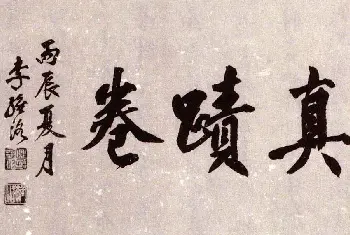 真蹟卷
丙辰夏月
李經